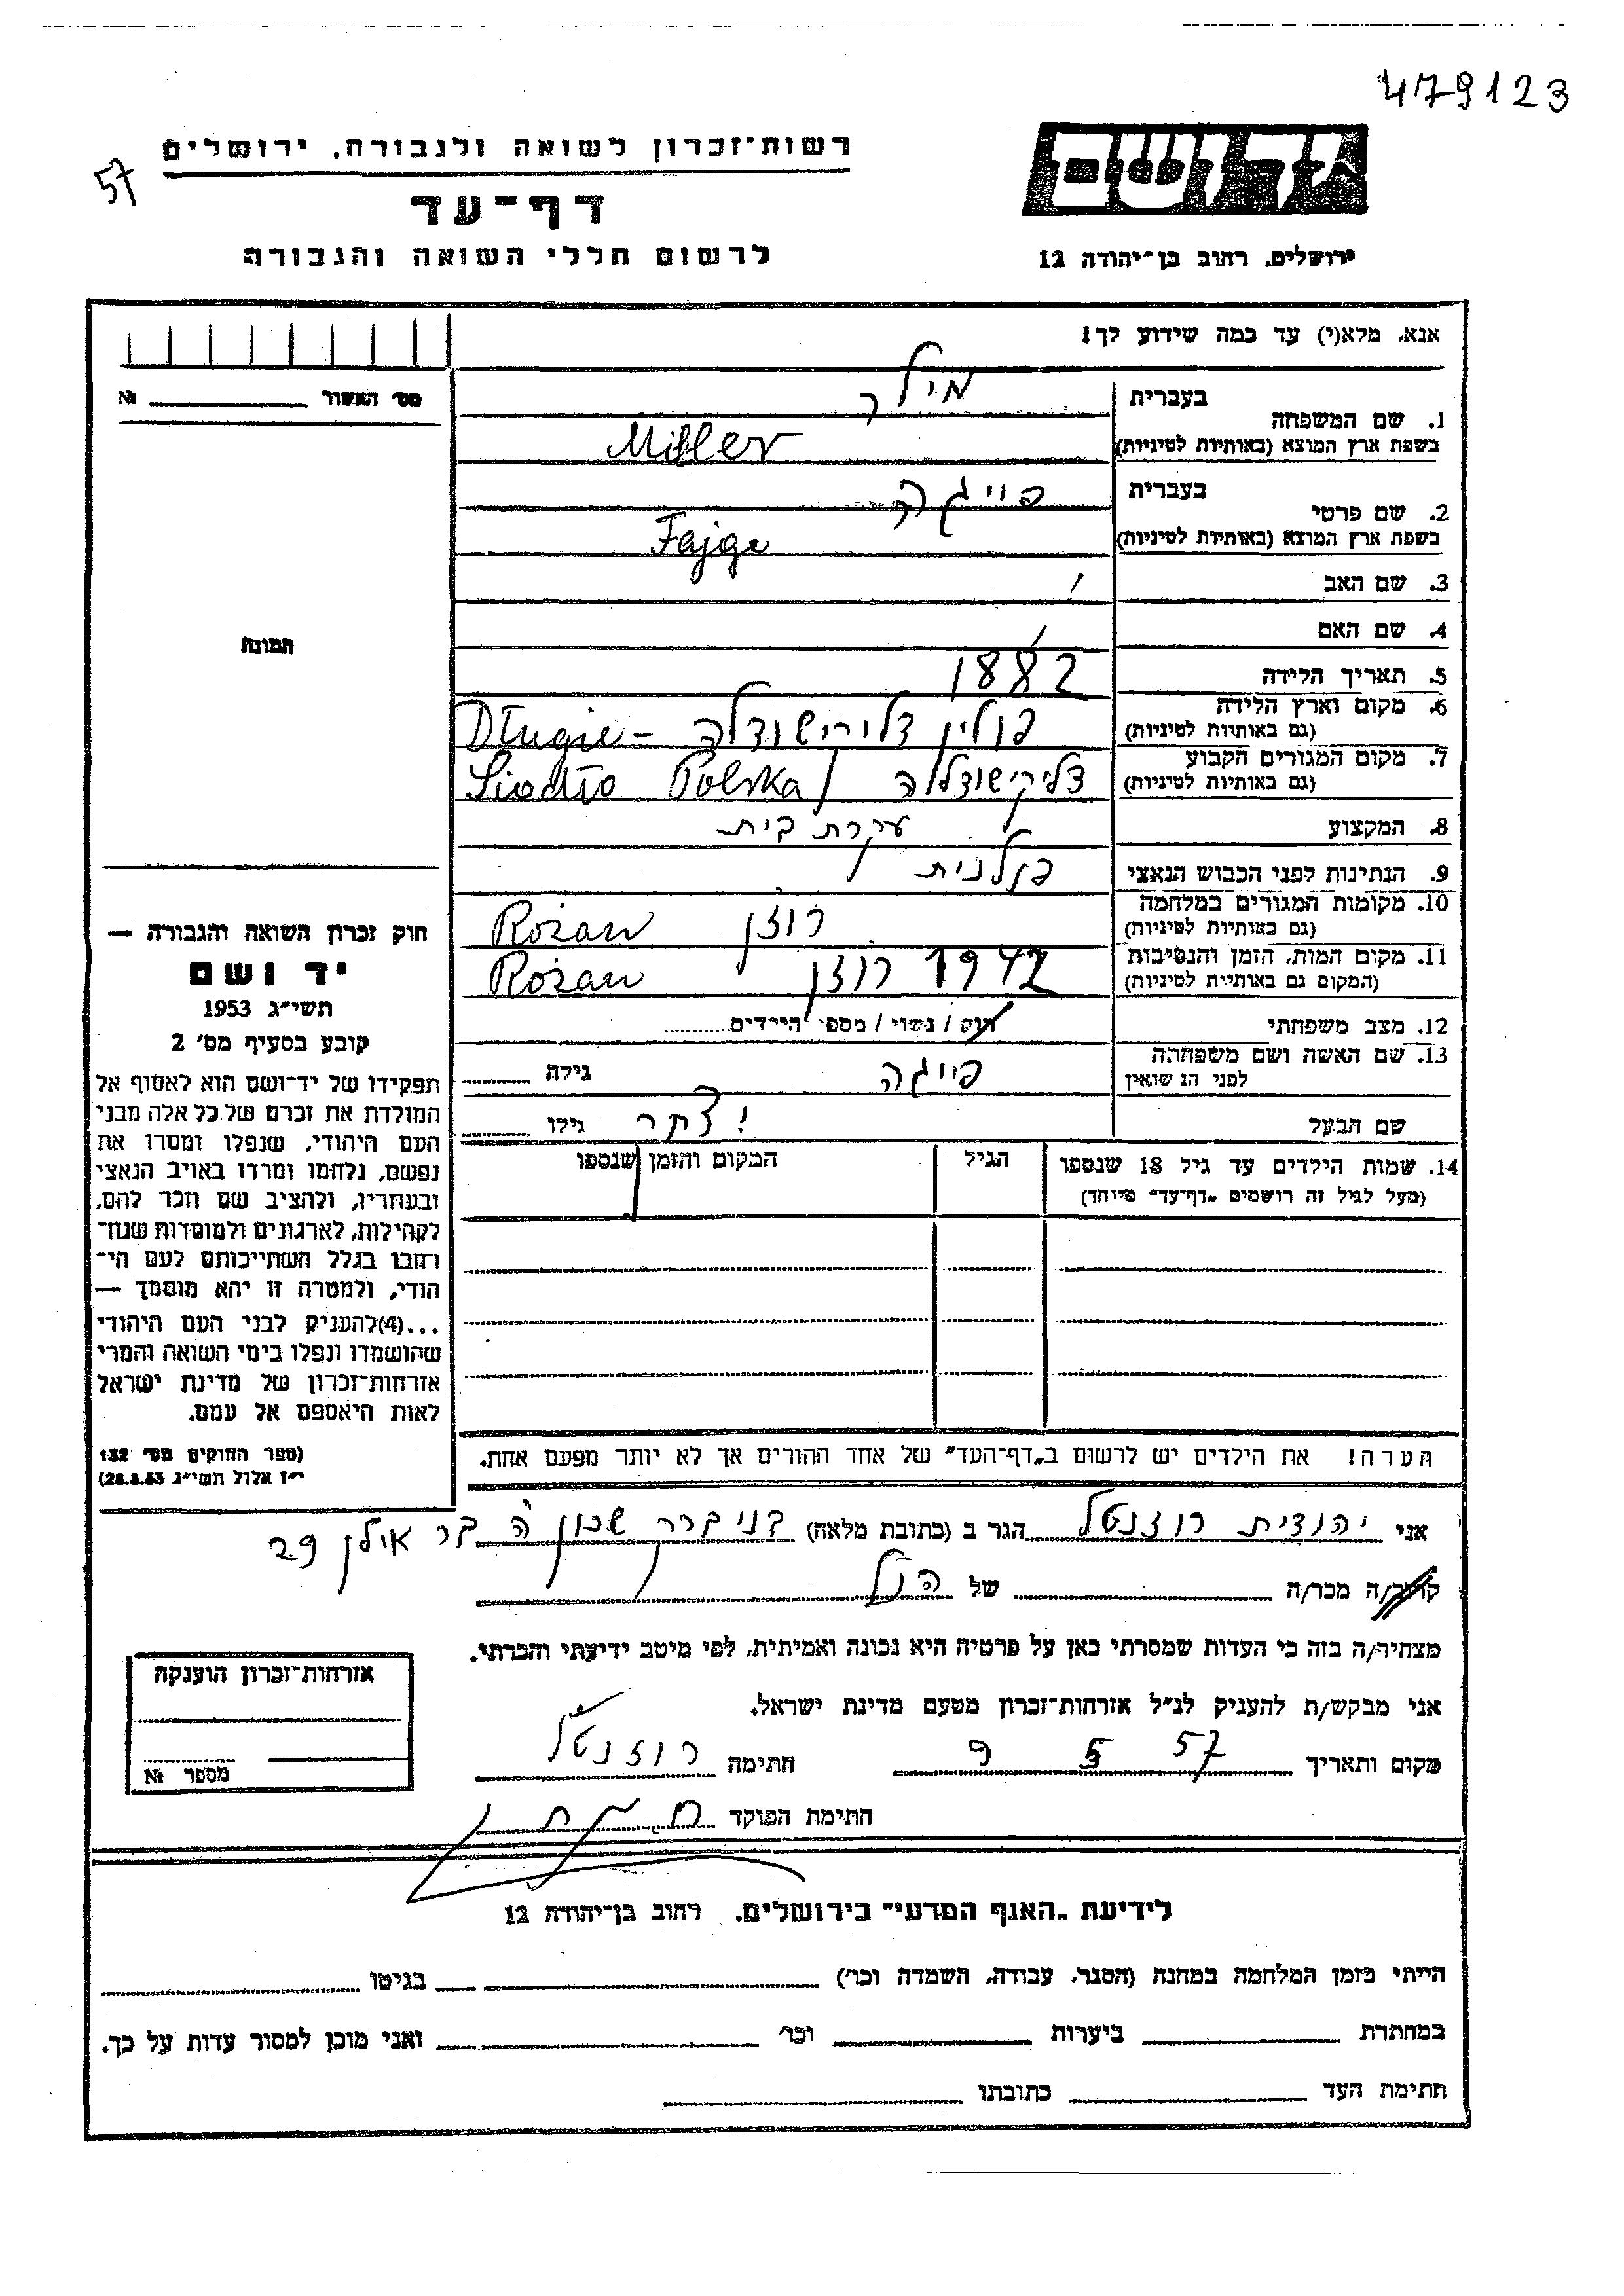 479123
57
רשות־זכרון לשואה ולגבורה, ירושלים
דף־עד
לרשום חללי השואה והגבורה
יד ושם
ירושלים, רחוב בן־יהודה 12
אנא, מלא(י) עד כמה שידוע לך!
מס׳ האשור №
תמונה
1. שם המשפחה
בעברית מילר
בשפת ארץ המוצא (באותיות לטיניות) Miller
2. שם פרטי
בעברית פייגה
בשפת ארץ המוצא (באותיות לטיניות) Fajge
3. שם האב /
4. שם האם /
5. תאריך הלידה 1882
6. מקום וארץ הלידה פולין Długie-
(גם באותיות לטיניות)
7. מקום המגורים הקבוע Siodło Polska
(גם באותיות לטיניות)
8. המקצוע עקרת בית
9. הנתינות לפני הכבוש הנאצי פולנית
10. מקומות המגורים במלחמה רוזן Rożan
(גם באותיות לטיניות)
11. מקום המות, הזמן והנסיבות 1942 רוזן Rożan
(המקום גם באותיות לטיניות)
12. מצב משפחתי רוק / נשוי / מספר הילדים
13. שם האשה ושם משפחתה פייגה גילה
לפני הנשואין
שם הבעל גילו
14. שמות הילדים עד גיל 18 שנספו הגיל המקום והזמן שנספו
(מעל לגיל זה רושמים „דף־עד״ מיוחד)
הערה! את הילדים יש לרשום ב„דף־העד״ של אחד ההורים אך לא יותר מפעם אחת.
חוק זכרון השואה והגבורה —
יד ושם
תשי״ג 1953
קובע בסעיף מס׳ 2
תפקידו של יד־ושם הוא לאסוף אל
המולדת את זכרם של כל אלה מבני
העם היהודי, שנפלו ומסרו את
נפשם, נלחמו ומרדו באויב הנאצי
ובעוזריו, ולהציב שם וזכר להם,
לקהילות, לארגונים ולמוסדות שנח־
רבו בגלל השתייכותם לעם הי־
הודי, ולמטרה זו יהא מוסמך —
...(4)להעניק לבני העם היהודי
שהושמדו ונפלו בימי השואה והמרי
אזרחות־זכרון של מדינת ישראל
לאות היאספם אל עמם.
(ספר החוקים מס׳ 132
י״ז אלול תשי״ג 28.8.53)
אני יהודית רוזנטל הגר ב (כתובת מלאה) בני ברק שכון ה בר אילן 29
קרוב/ה מכר/ה של הנ״ל
מצהיר/ה בזה כי העדות שמסרתי כאן על פרטיה היא נכונה ואמיתית, לפי מיטב ידיעתי והכרתי.
אני מבקש/ת להעניק לנ״ל אזרחות־זכרון מטעם מדינת ישראל.
מקום ותאריך 9 5 57 חתימה רוזנטל
חתימת הפוקד
אזרחות־זכרון הוענקה
מספר №
לידיעת „האגף המדעי״ בירושלים. רחוב בן־יהודה 12
הייתי בזמן המלחמה במחנה (הסגר, עבודה, השמדה וכו׳) בגיטו
במחתרת ביערות וכו׳ ואני מוכן למסור עדות על כך.
חתימת העד כתובתו